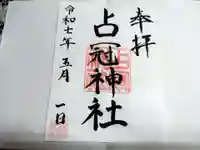 奉拝
占冠神社
令和七年五月一日